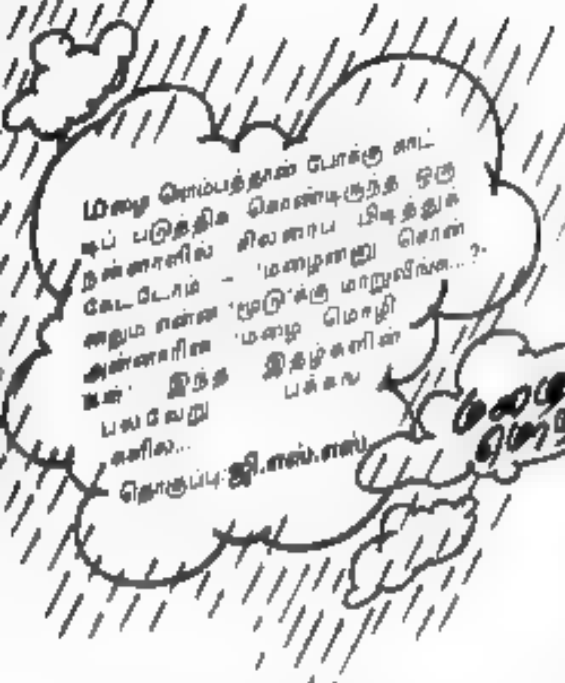 மழை ரொம்பத்தான் போக்கு காட்
டிப் படுத்திக் கொண்டிருந்த ஒரு
நன்னாளில் சிலரைப் பிடித்துக்
கேட்டோம் - 'மழைன்னு சொன்
னதும் என்ன 'மூடு'க்கு மாறுவீங்க...?'
அன்னாரின் 'மழை மொழி
கள்' இந்த இதழ்களின்
பல்வேறு பக்கங்
களில்...
தொகுப்பு: ஜி.எஸ்.எஸ்.